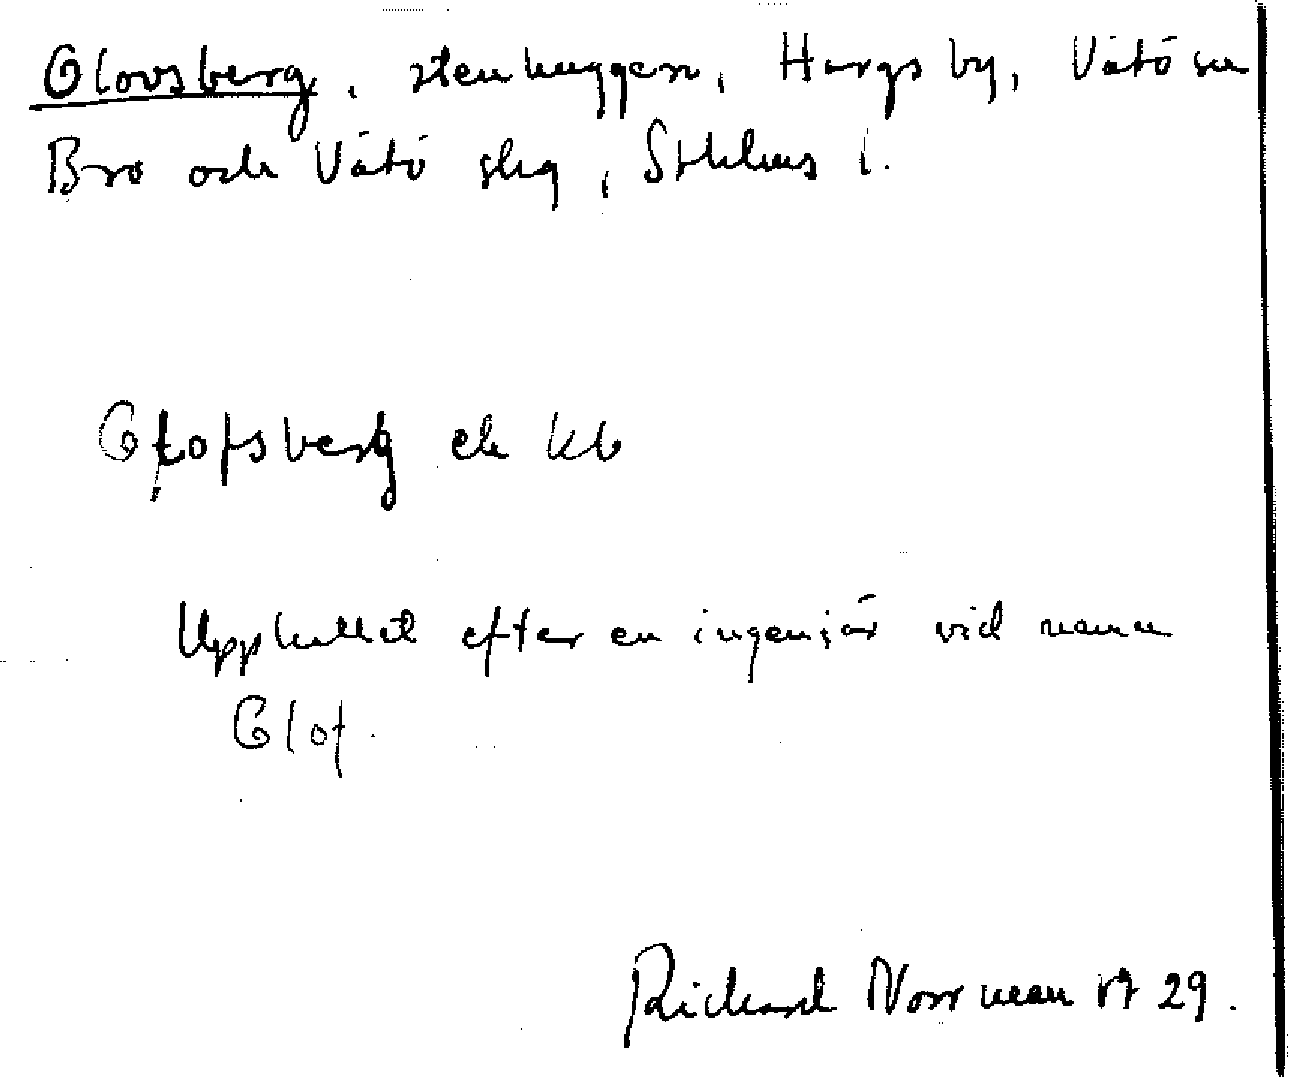 Glovsberg, stenhuggeri, Hargs by, Vätö sn
Bro och Vätö slg, Sthlms l.
Glofsberg ek kb
Uppkallat efter en ingenjör vid namn
Glof.
Richard Norrman 1929.